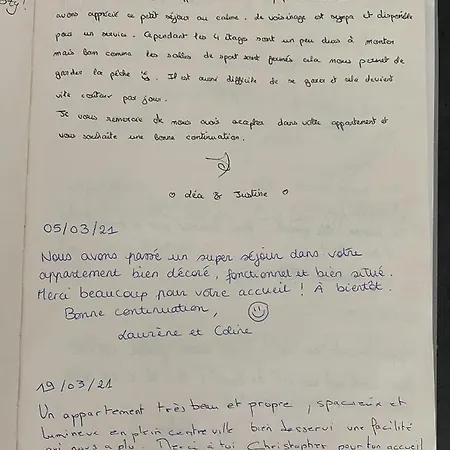 avons apprécié ce petit séjour au calme. Le voisinage est sympa et disponible
pour un service. Cependant les 4 étages sont un peu durs à monter
mais bon comme les salles de sport sont fermés cela nous permet de
garder la pêche. Il est aussi difficile de se garer et cela devient
vite couteux par jour.
Je vous remercie de nous avoir acceptés dans votre appartement et
vous souhaite une bonne continuation.
Léa & Justine
05/03/21
Nous avons passé un super séjour dans votre
appartement bien décoré, fonctionnel et bien situé.
Merci beaucoup pour votre accueil ! À bientôt.
Bonne continuation,
Laurène et Coline
19/03/21
Un appartement très beau et propre, spacieux et
lumineux en plein centre ville bien desservi une facilité
qui nous a plu. Merci à toi Christopher pour ton accueil